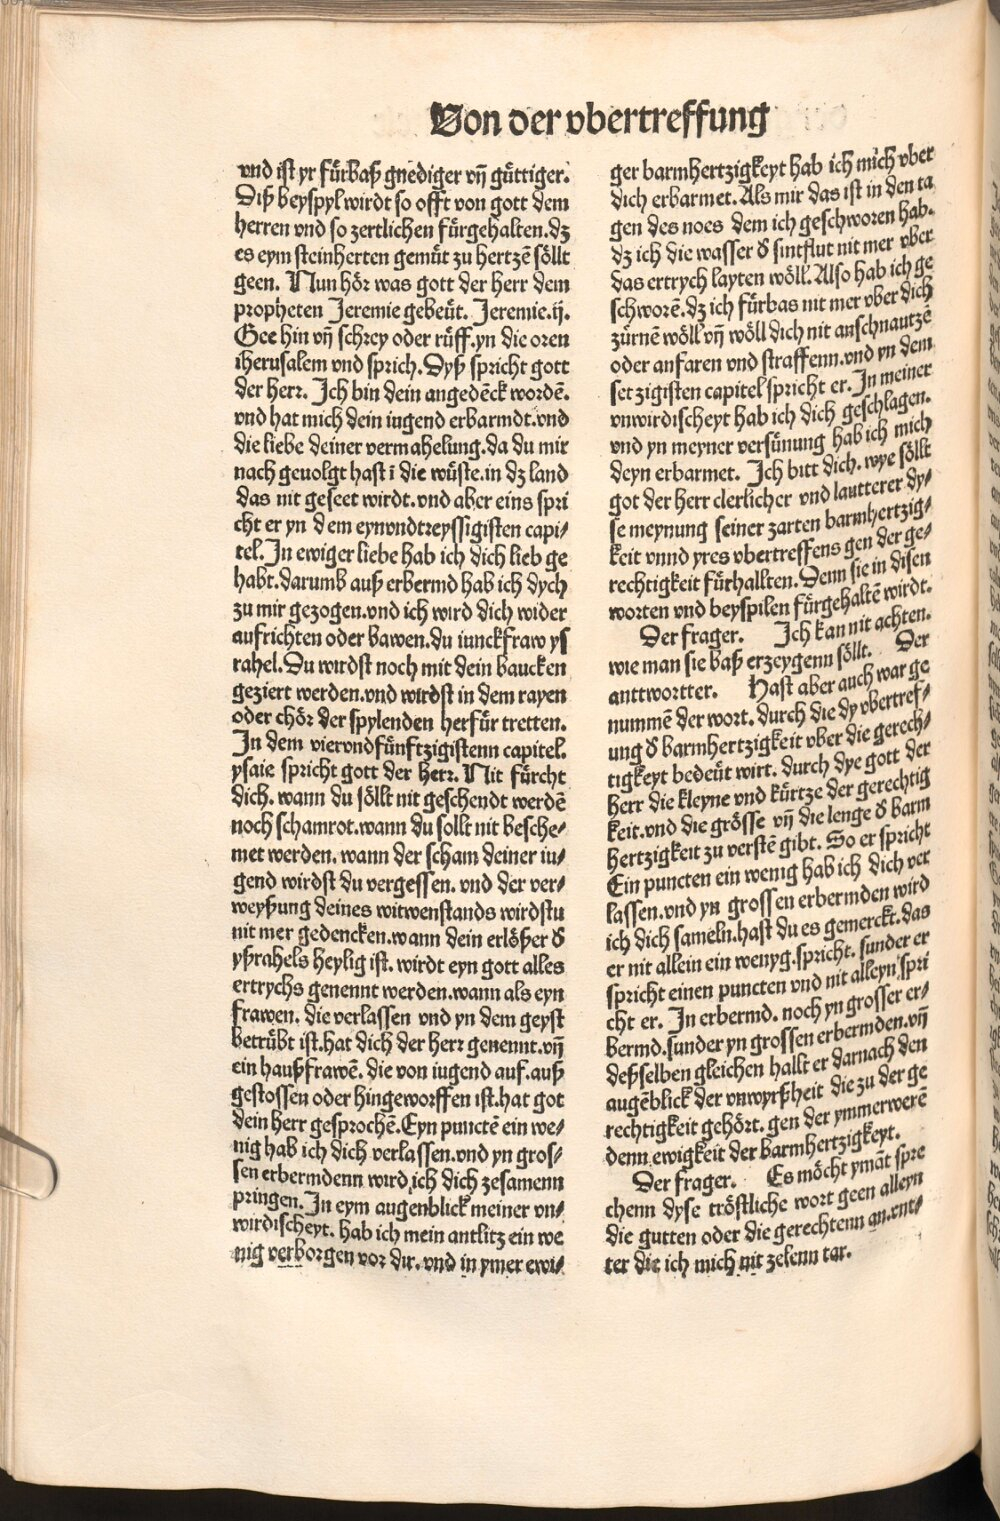 Von der vbertreffung
vnd ist yr fu̇rbaß gnediger vn̄ gu̇ttiger.
Diß beyspyl wirdt so offt von gott dem
herren vnd so zertlichen fu̇rgehalten.dz
es eym steinherten gemu̇t zu hertzē söllt
geen. Nun hör was gott der herr dem
propheten Jeremie gebeu̇t. Jeremie.ij.
Gee hin vn̄ schrey oder ru̇ff.yn die oren
iherusalem vnd sprich.Dyß spricht gott
der herr. Ich bin dein angedēck wordē.
vnd hat mich dein iugend erbarmdt.vnd
die liebe deiner vermahelung.da du mir
nach geuolgt hast ī die wu̇ste.in dz land
das nit geseet wirdt.vnd aber eins spri
cht er yn dem eynvndtreyssigisten capi⸗
tel.In ewiger liebe hab ich dich lieb ge
habt.darumb auß erbermd hab ich dych
zu mir gezogen.vnd ich wird dich wider
aufrichten oder bawen.du iunckfraw ys
rahel.Du wirdst noch mit dein baucken
geziert werden.vnd wirdst in dem rayen
oder chör der spylenden herfu̇r tretten.
In dem viervndfu̇nftzigistenn capitel.
ysaie spricht gott der herr.Nit fu̇rcht
dich.wann du söllt nit geschendt werdē
noch schamrot.wann du sollt nit besche⸗
met werden.wann der scham deiner iu⸗
gend wirdst du vergessen.vnd der ver⸗
weyßung deines witwenstands wirdstu
nit mer gedencken.wann dein erlößer ð
yßrahels heylig ist.wirdt eyn gott alles
ertrychs genennt werden.wann als eyn
frawen. die verlassen vnd yn dem geyst
betru̇bt ist.hat dich der herr genennt.vn̄
ein haußfrawē.die von iugend auf.auß
gestossen oder hingeworffen ist.hat got
dein herr gesprochē.Eyn punctē ein we⸗
nig hab ich dich verlassen.vnd yn gros⸗
sen erbermdenn wird ich dich zesamenn
pringen.In eym augenblick meiner vn⸗
wirdischeyt. hab ich mein antlitz ein we
nig verborgen vor dir.vnd in ymer ewi⸗
ger barmhertzigkeyt hab ich mich vber
dich erbarmet.Als mir das ist in den ta
gen des noes dem ich geschworen hab.
dz ich die wasser ð sintflut nit mer vber
das ertrych layten wöll.Also hab ich ge
schworē.dz ich fu̇rbas nit mer vber dich
zu̇rnē wöll vn̄ wöll dich nit anschnautzē
oder anfaren vnd straffenn.vnd yn dem
setzigisten capitel spricht er.In meiner
vnwirdischeyt hab ich dich geschlagen.
vnd yn meyner versu̇nung hab ich mich
deyn erbarmet. Ich bitt dich.wye söllt
got der herr clerlicher vnd lautterer dy⸗
se meynung seiner zarten barmhertzig⸗
keit vnnd yres vbertreffens gen der ge⸗
rechtigkeit fu̇rhallten.Denn sie in disen
worten vnd beyspilen fu̇rgehaltē wirdt.
Der frager. Ich kan nit achten.
wie man sie baß erzeygenn söllt. Der
anttwortter. Hast aber auch war ge
nummē der wort.durch die dy vbertref⸗
ung ð barmhertzigkeit vber die gerech⸗
tigkeyt bedeu̇t wirt. durch dye gott der
herr die kleyne vnd ku̇rtze der gerechtig
keit.vnd die grösse vn̄ die lenge ð barm
hertzigkeit zu verstē gibt. So er spricht
Ein puncten ein wenig hab ich dich ver
lassen.vnd yn grossen erbermden wird
ich dich sameln.hast du es gemerckt.das
er nit allein ein wenyg.spricht.sunder er
spricht einen puncten vnd nit alleyn spri
cht er. In erbermd. noch yn grosser er⸗
bermd.sunder yn grossen erbermden.vn̄
deßselben gleichen hallt er darnach den
augēblick der vnwyrßheit die zu der ge
rechtigkeit gehört.gen der ymmerwerē
denn ewigkeit der barmhertzigkeyt.
Der frager. Es möcht ymāt spre
chenn dyse tröstliche wort geen alleyn
die gutten oder die gerechtenn an.vnt⸗
ter die ich mich nit zelenn tar.